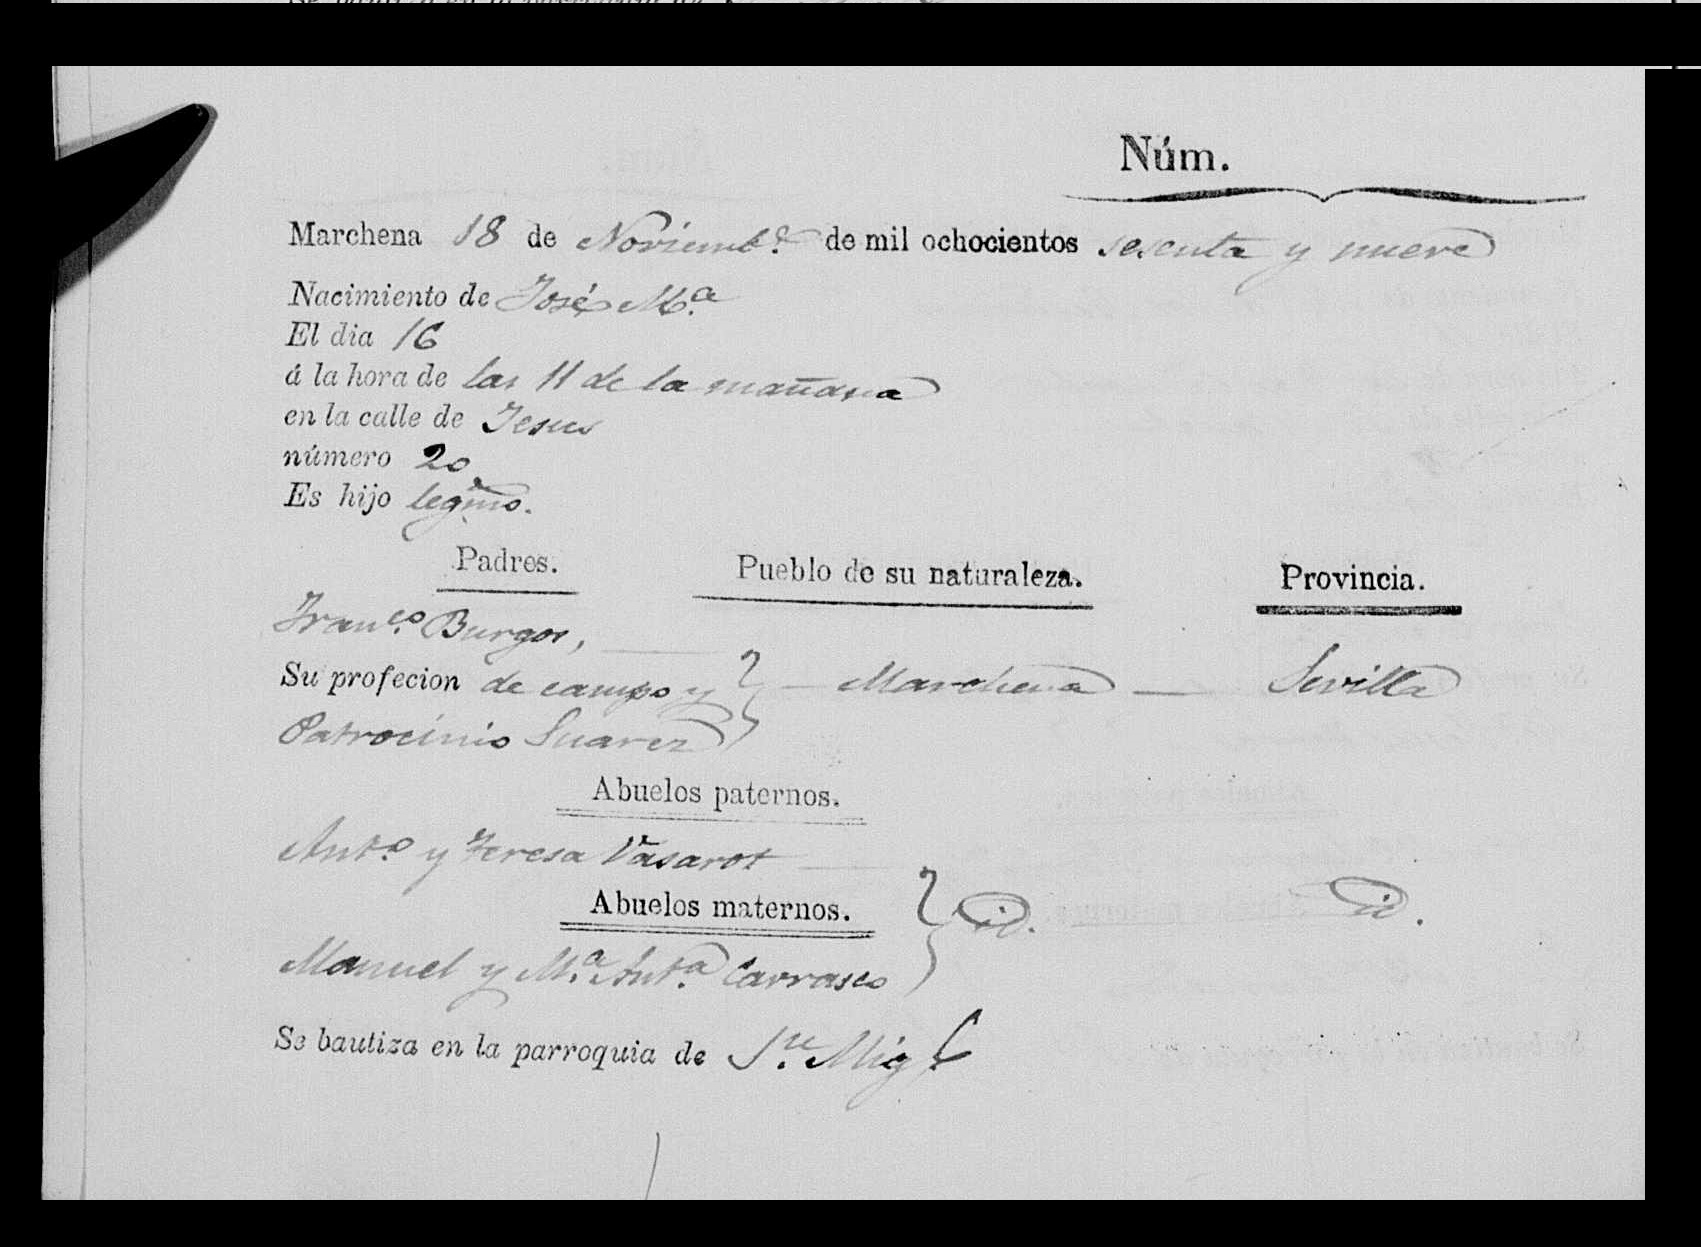 Núm.
Marchena 18 de Noviembe. de mil ochocientos sesenta y nueve
Nacimiento de José Ma.
El dia 16
á la hora de las 11 de la mañana
en la calle de Jesus
número 20
Es hijo legmo.
Padres. Pueblo de su naturaleza. Provincia.
Franco. Burgos,
Su profecion de campo y Marchena Sevilla
Patrocinio Suarez
Abuelos paternos.
Anto. y Teresa
Abuelos maternos. id. id.
Manuel y Ma. Anta. Carrasco
Se bautiza en la parroquia de Sn. Migl